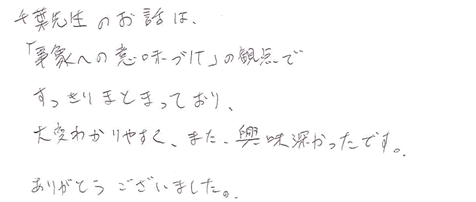 千葉先生のお話は、
「事象への意味づけ」の観点で
すっきりまとまっており、
大変わかりやすく、また、興味深かったです。
ありがとうございました。